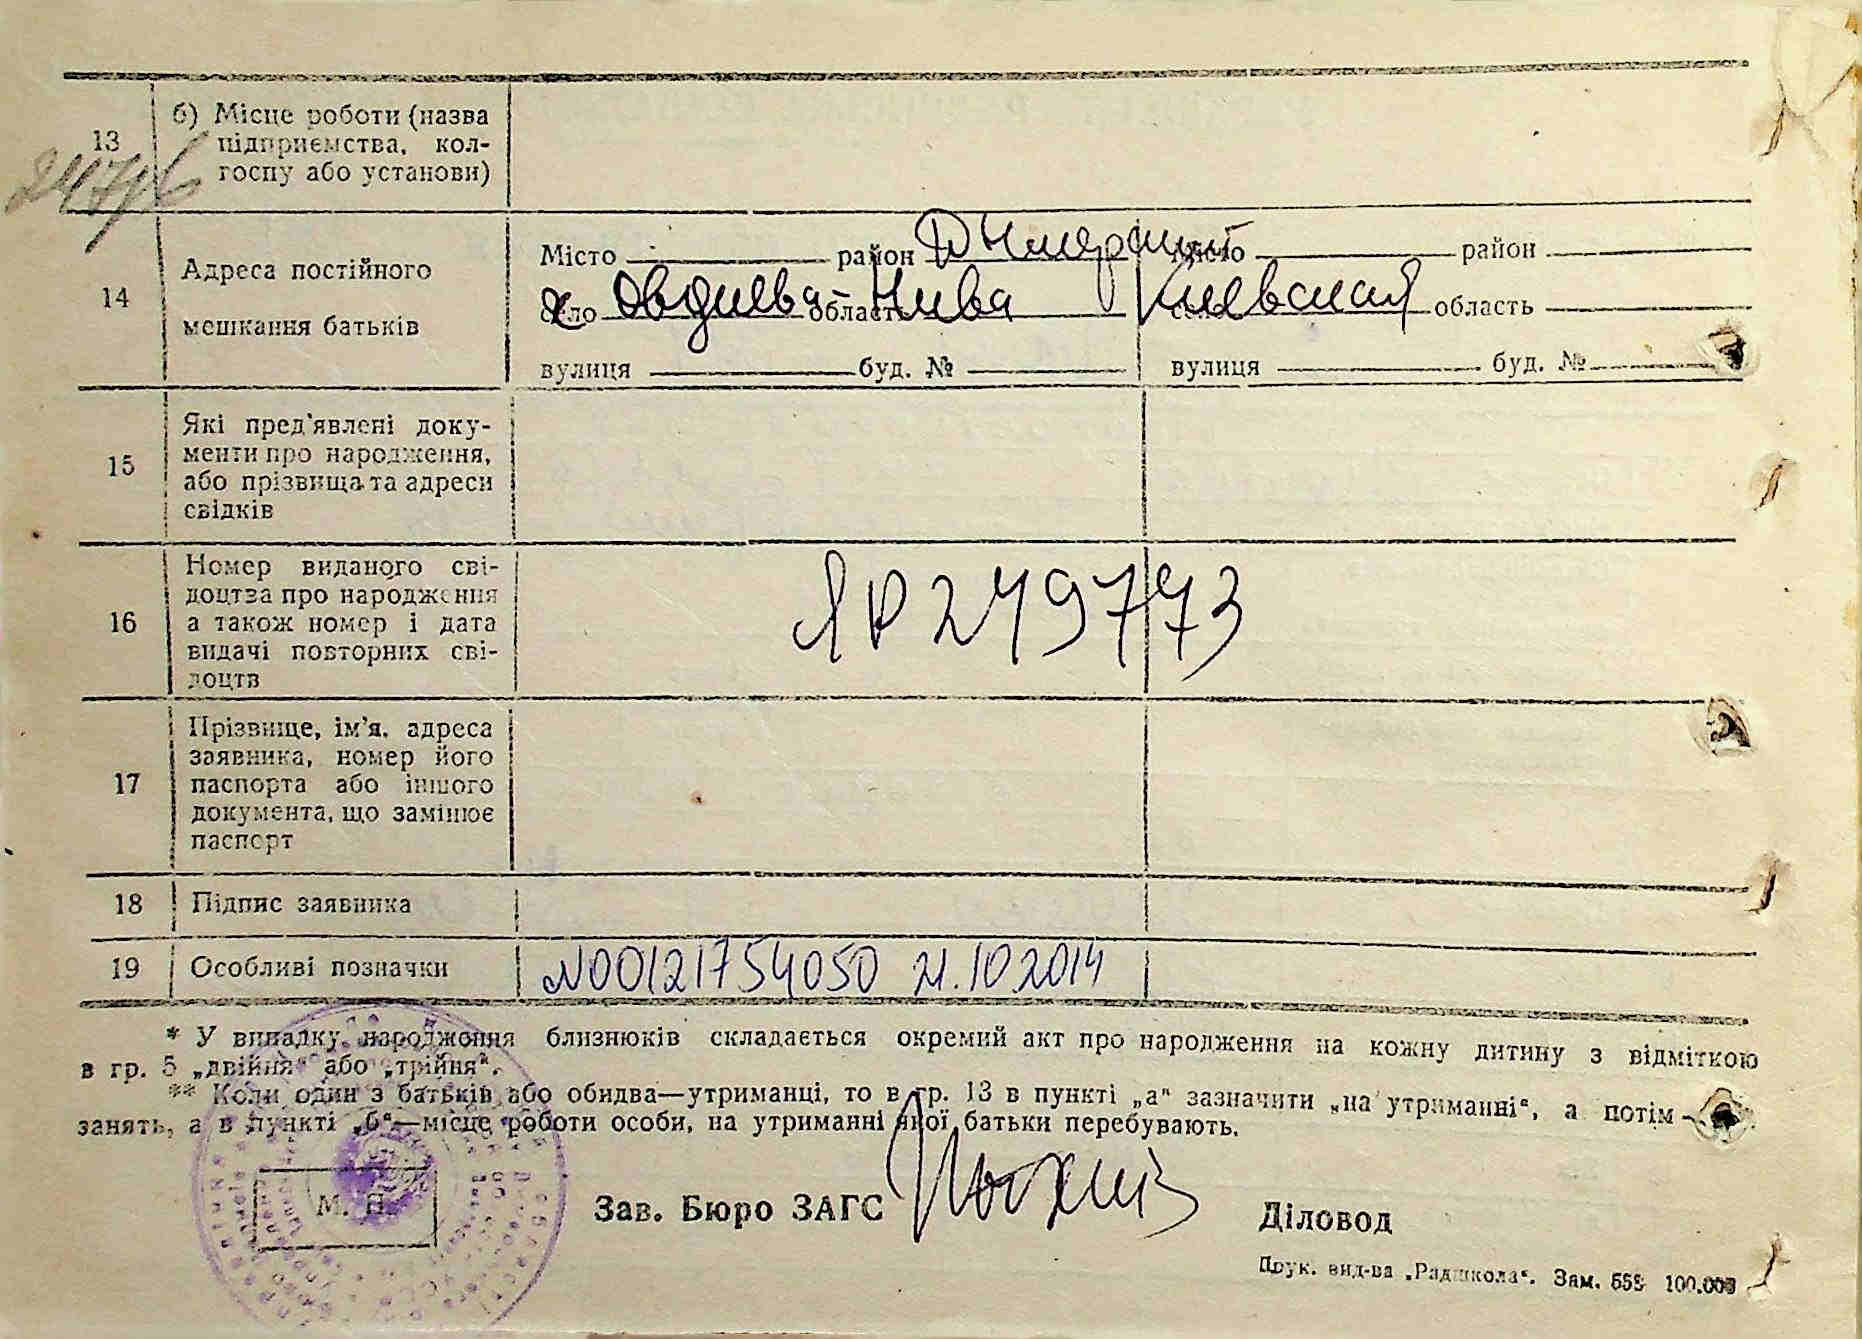 13
б) Місце роботи (назва
підприємства, кол-
госпу або установи)
14
Адреса постійного
мешкання батьків
Місто район Дымерский Місто район
село Овдиева-Нива область Киевская область
вулиця буд. № вулиця буд. №
15
Які пред'явлені доку-
менти про народження,
або прізвища та адреси
свідків
16
Номер виданого сві-
доцтва про народження
а також номер і дата
видачі повторних сві-
доцтв
ЯР 249773
17
Прізвище, ім'я, адреса
заявника, номер його
паспорта або іншого
документа, що замінює
паспорт
18 Підпис заявника
19 Особливі позначки N00121754050 21.10.2014
* У випадку народження близнюків складається окремий акт про народження на кожну дитину з відміткою
в гр. 5 „двійня" або „трійня".
** Коли один з батьків або обидва—утриманці, то в гр. 13 в пункті „а" зазначити „на утриманні", а потім -
занять, а в пункті „б"—місце роботи особи, на утриманні якої батьки перебувають.
М. П.
Зав. Бюро ЗАГС
Діловод
Друк. вид-ва „Радшкола". Зам. 558 100.000